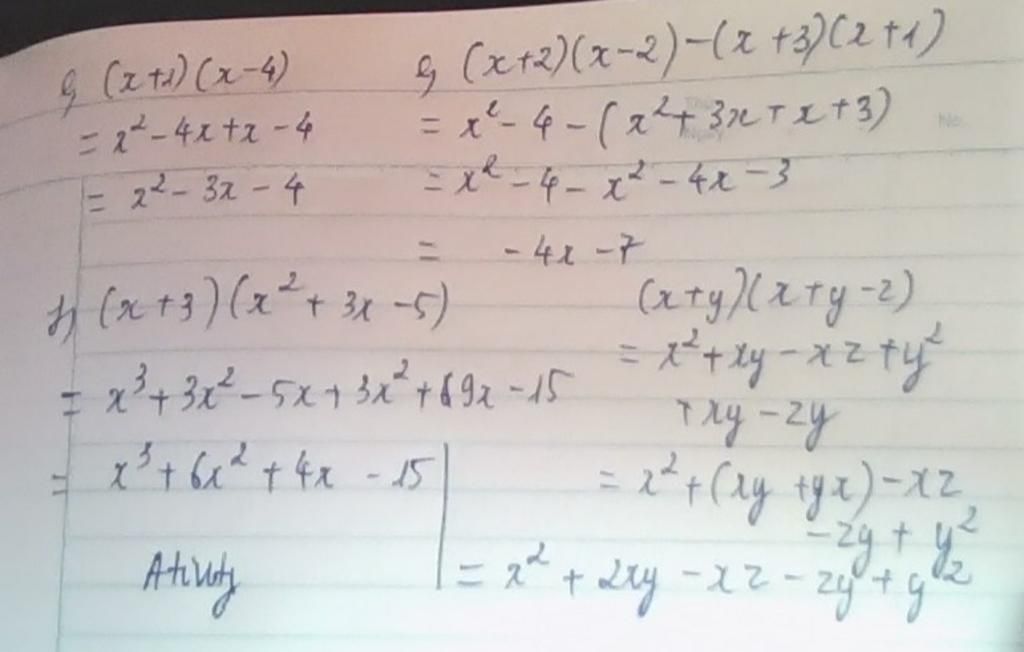 (x+1)(x-4)
= x² - 4x + x - 4
= x² - 3x - 4
(x+2)(x-2) - (x+3)(x+1)
= x² - 4 - (x² + 3x + x + 3)
= x² - 4 - x² - 4x - 3
= -4x - 7
(x+3)(x² + 3x - 5)
= x³ + 3x² - 5x + 3x² + 9x - 15
= x³ + 6x² + 4x - 15
(x+y)(x+y-z)
= x² + xy - xz + y²
+ xy - zy
= x² + (xy + yx) - xz
- zy + y²
= x² + 2xy - xz - zy + y²